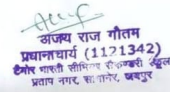 अजय राज गौतम
प्रधानाचार्य (1121342)
टैगोर भारती सीनियर सैकण्डरी स्कूल
प्रताप नगर, सांगानेर, जयपुर